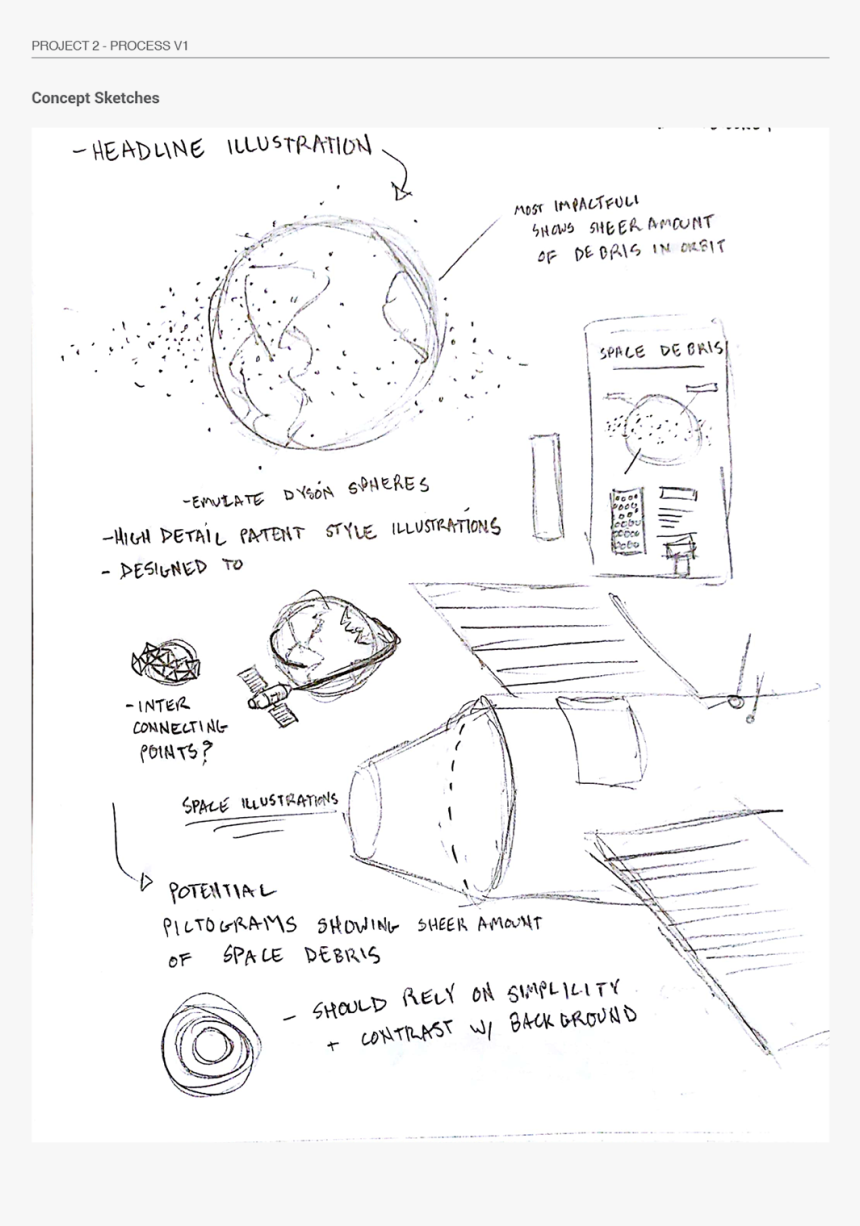 PROJECT 2 - PROCESS V1
Concept Sketches
- HEADLINE ILLUSTRATION
MOST IMPACTFUL!
SHOWS SHEER AMOUNT
OF DEBRIS IN ORBIT
SPACE DEBRIS
- EMULATE DYSON SPHERES
- HIGH DETAIL PATENT STYLE ILLUSTRATIONS
- DESIGNED TO
- INTER
CONNECTING
POINTS?
SPACE ILLUSTRATIONS
POTENTIAL
PICTOGRAMS SHOWING SHEER AMOUNT
OF SPACE DEBRIS
- SHOULD RELY ON SIMPLICITY
+ CONTRAST W/ BACKGROUND